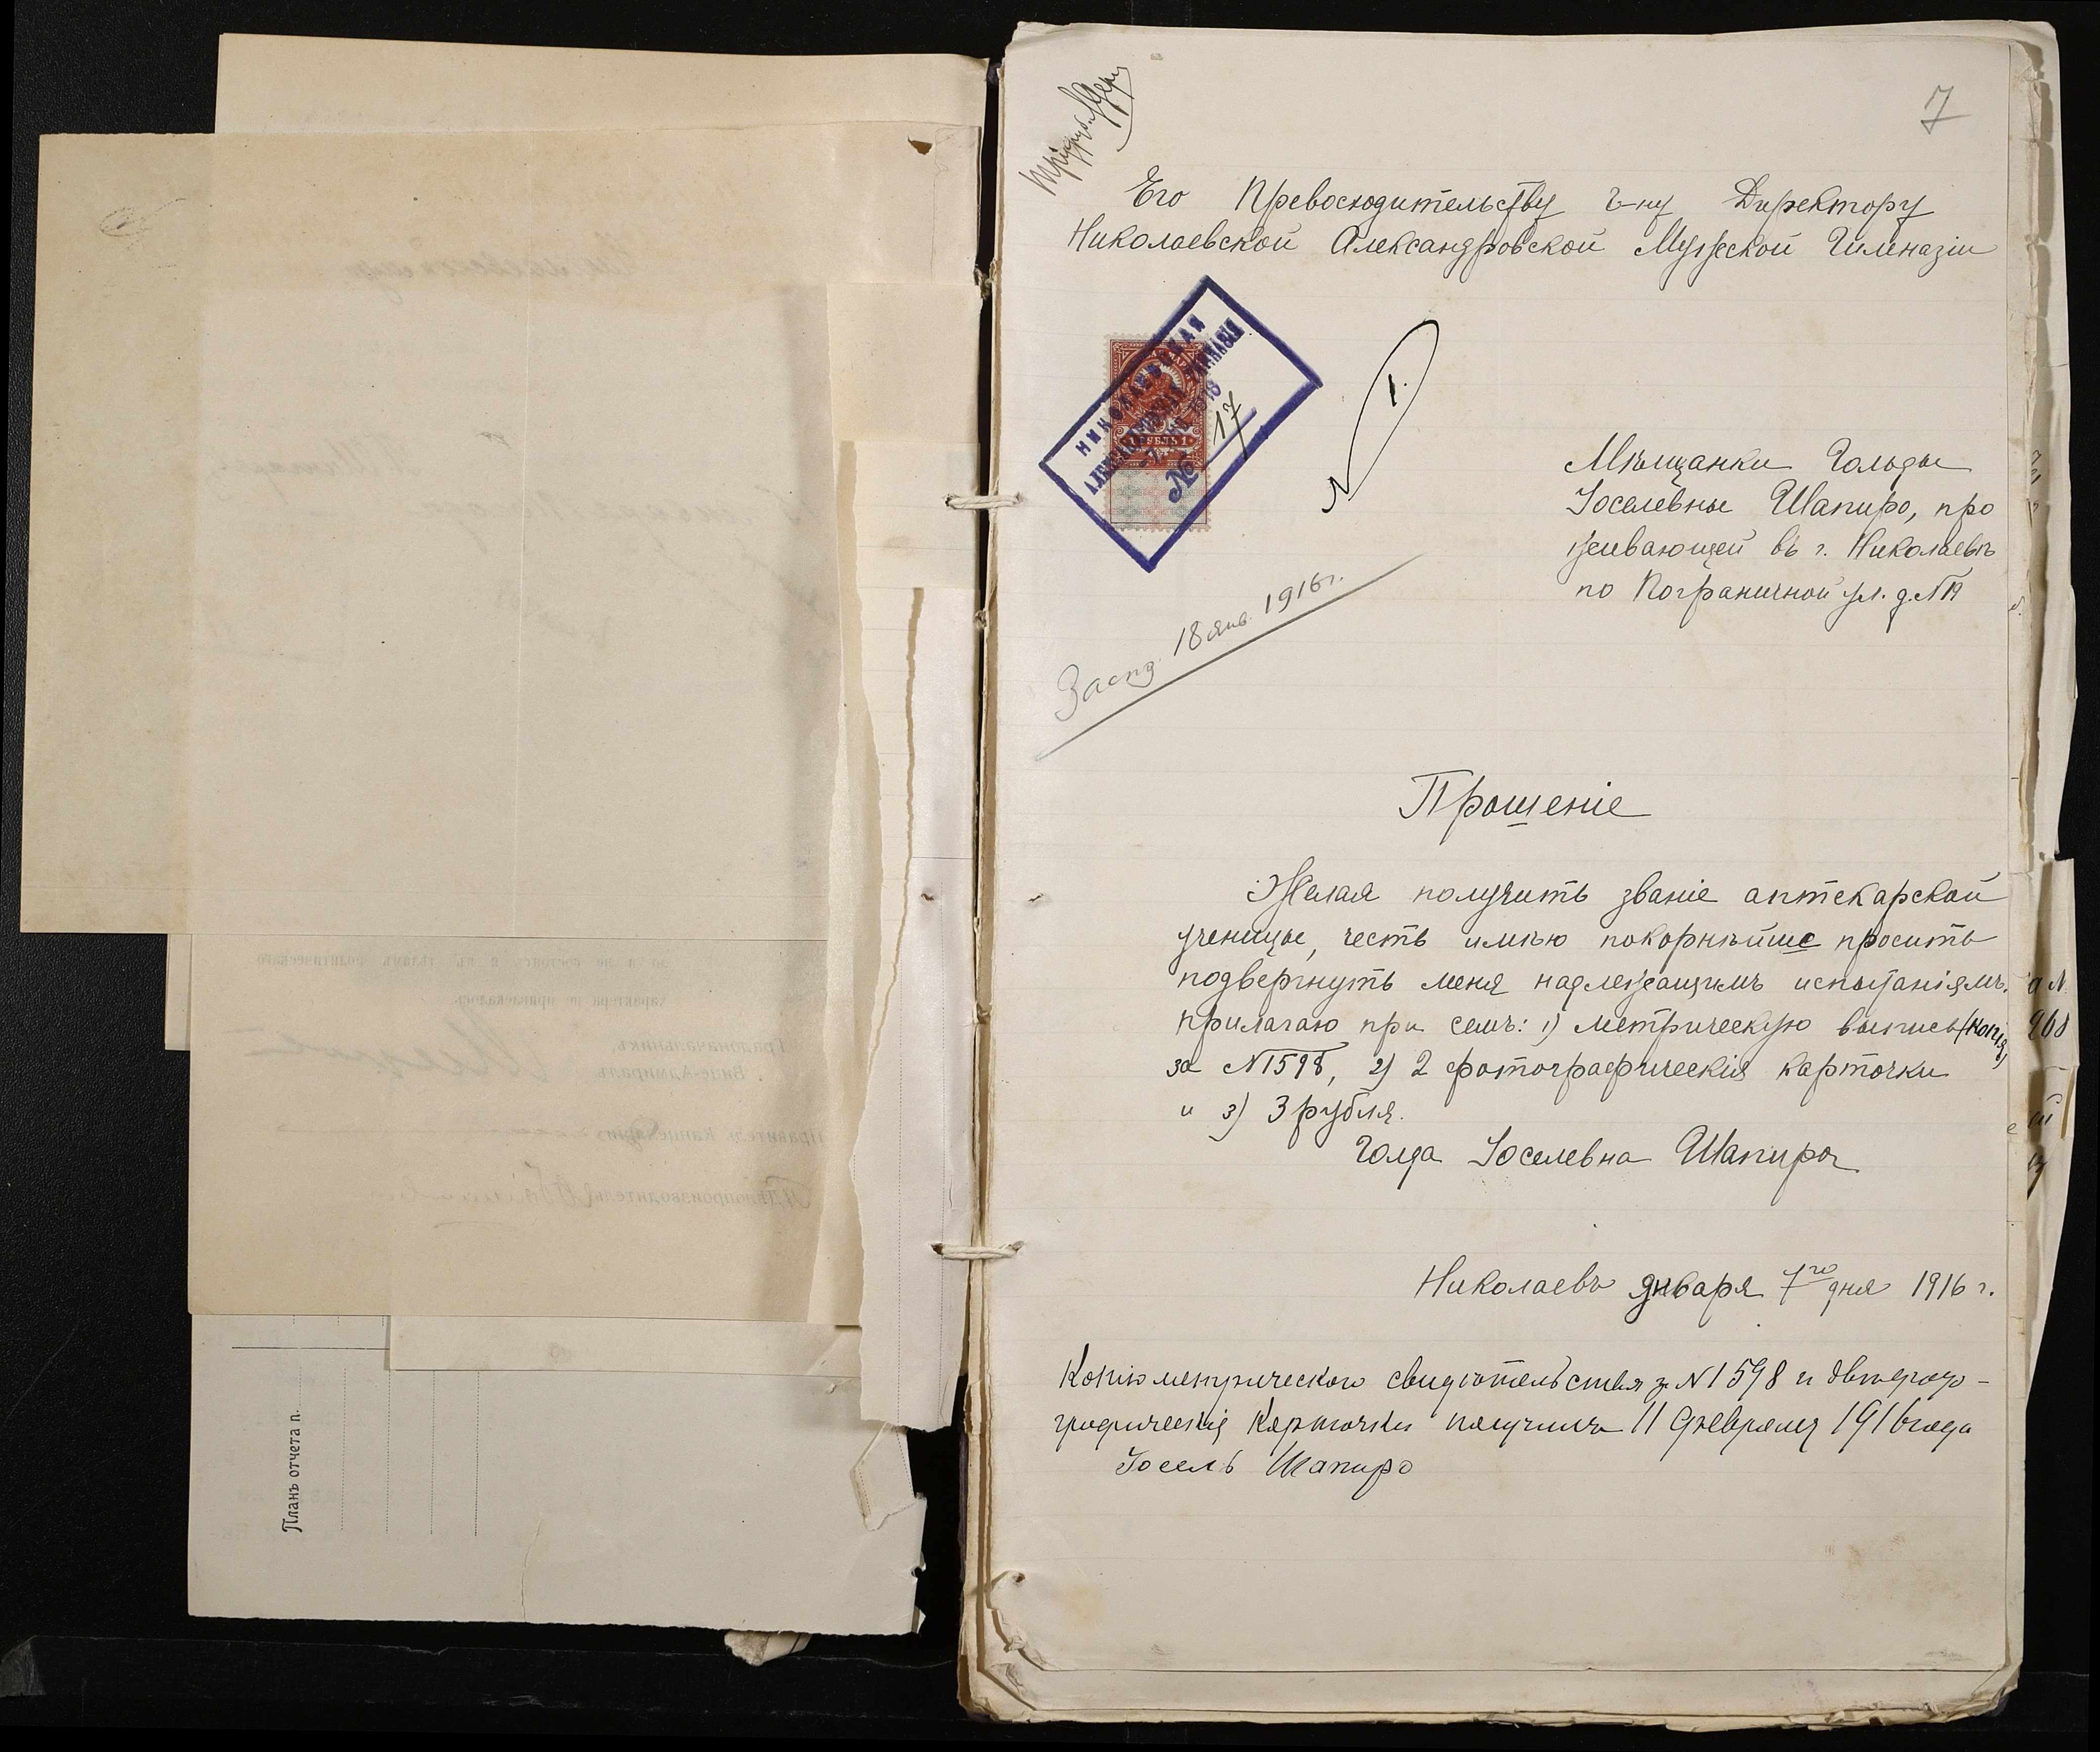 7
Его Превосходительству Г-ну Директору
Николаевской Александровской Мужской Гимназіи
НИКОЛАЕВСКАЯ
АЛЕКСАНДРОВСКАЯ ГИМНАЗІЯ
№ 17
1 РУБЛЬ 1
N 1.
Мѣщанки Гольды
Іоселевны Шапиро, про
живающей въ г. Николаевѣ
по Пограничной ул. д. №
18 янв. 1916 г.
Прошеніе
Желая получить званіе аптекарской
ученицы, честь имѣю покорнѣйше просить
подвергнуть меня надлежащимъ испытаніямъ.
прилагаю при семъ: 1) метрическую выпись (копія)
за N 1598, 2) 2 фотографическія карточки
и 3) 3 рубля.
Голда Іоселевна Шапиро
Николаевъ января 7го дня 1916 г.
Копію метрическаго свидѣтельства за N 1598 и две фото-
графическія карточки получилъ 11 февраля 1916 года
Іосель Шапиро
Градоначальникъ,
Вице-Адмиралъ
Правитель Канцеляріи
Дѣлопроизводитель
Планъ отчета п.